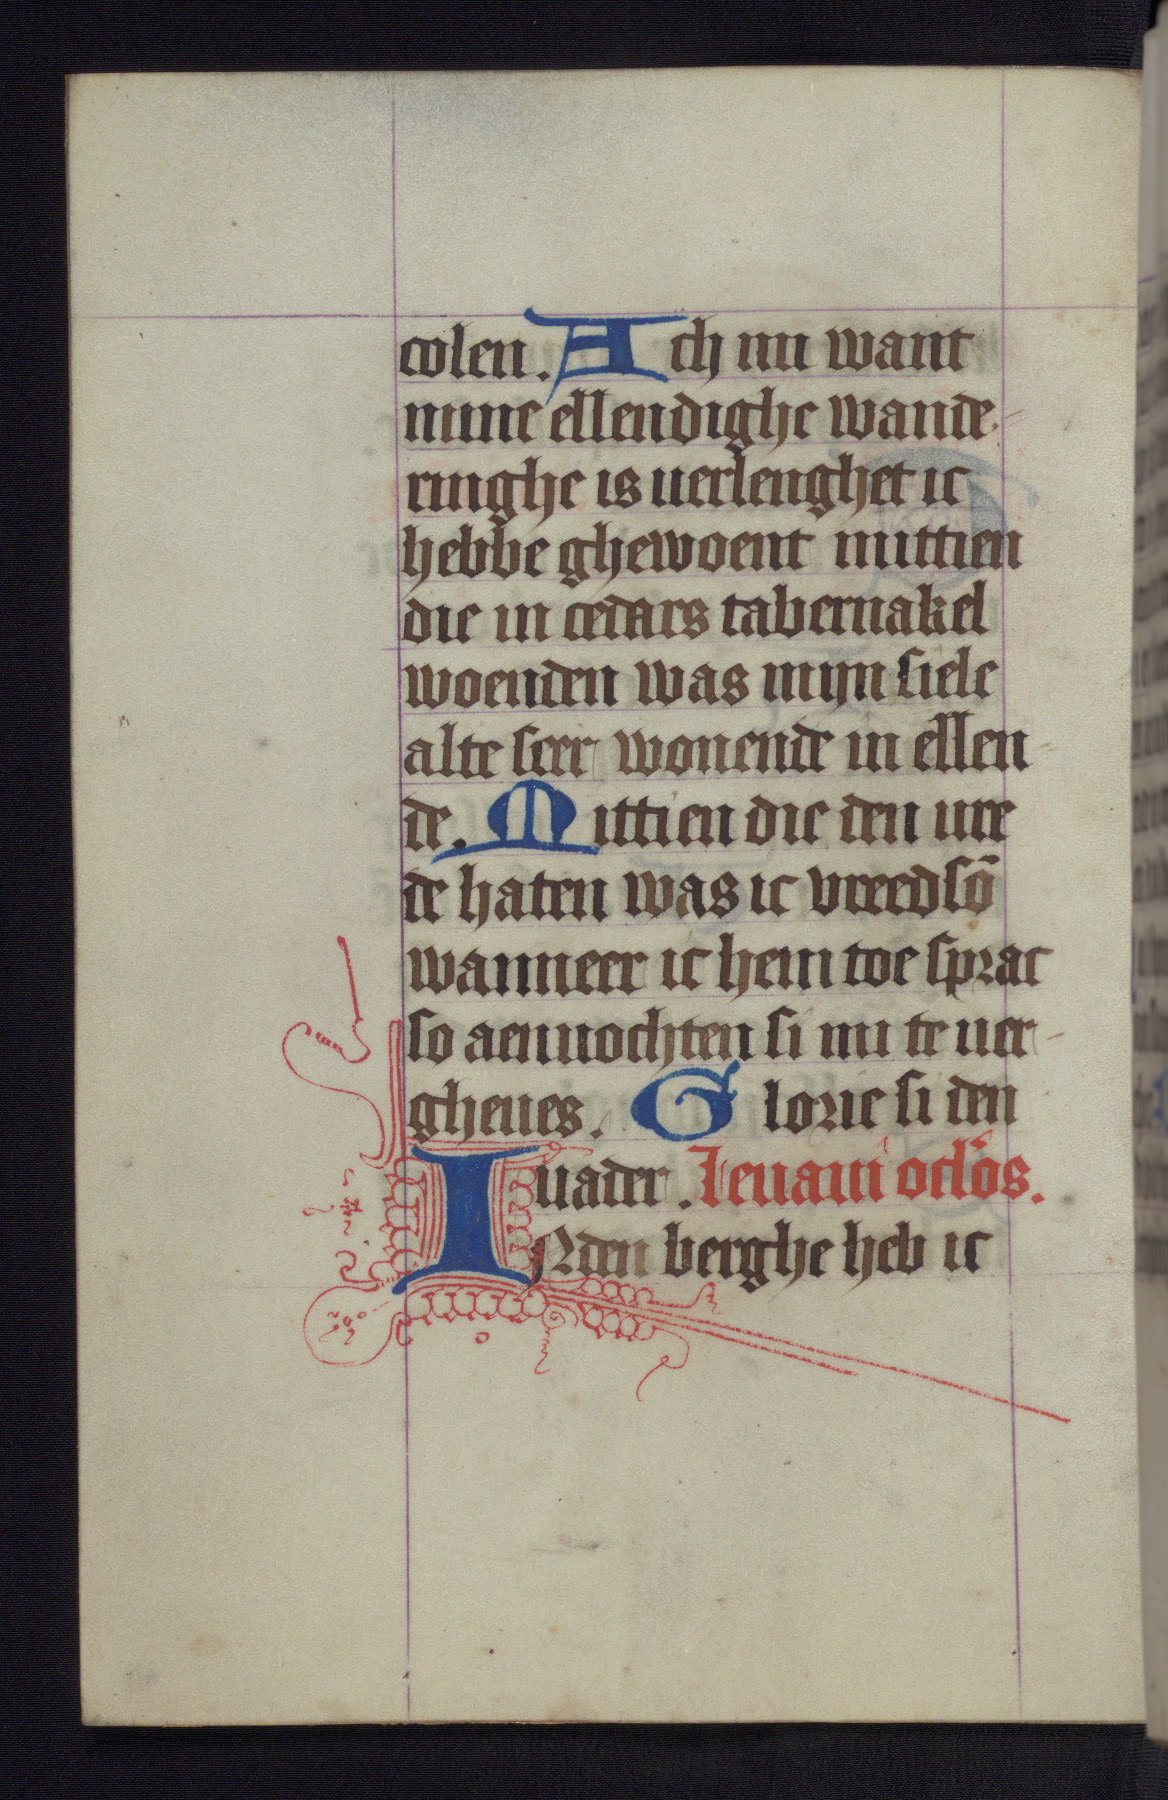 colen. Ach mi want
mine ellendighe wande
ringhe is uerlenghet ic
hebbe ghewoent mittien
die in cedars tabernakel
woenden was mijn siele
alte seer wonende in ellen
de. Mittien die den vre
de haten was ic vreedsō
wanneer ic hem toe sprac
so aenuochten si mi te uer
gheues. Glorie si den
uader. Leuaui oclōs.
INden berghe heb ic